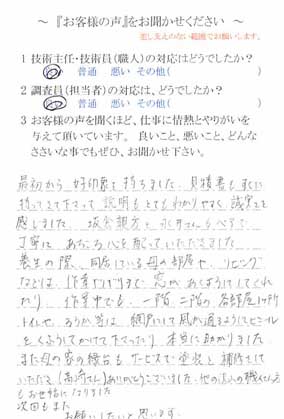 ～『お客様の声』をお聞かせください～
差し支えのない範囲でお願いします。
1 技術主任・技術員(職人)の対応はどうでしたか?
良い 普通 悪い その他( )
2 調査員(担当者)の対応は、どうでしたか?
良い 普通 悪い その他( )
3 お客様の声を聞くほど、仕事に情熱とやりがいを
与えて頂いています。 良いこと、悪いこと、どんな
ささいな事でもぜひ、お聞かせ下さい。
最初から好印象を持ちました。見積書もすぐに
持ってきて下さって説明もとてもわかりやすく、誠実さを
感じました。
丁寧に あちこち心を配っていただきました
養生の際、同居している母の部屋や、リビング
などは、作業ギリギリまで窓があくようにしてくれ
たり、作業中でも、一階、二階の各部屋1ヶ所
トイレや、おふろ等は網戸にして風が通るようにビニール
をくふうしてかけて下さったり 本当に助かりました
また母の家の も サービスで塗装と補修をして
いただき(高崎さん)ありがとうございました。他の 職人さん方
もお世話になりました
次回もまた
お願いしたいと思います。